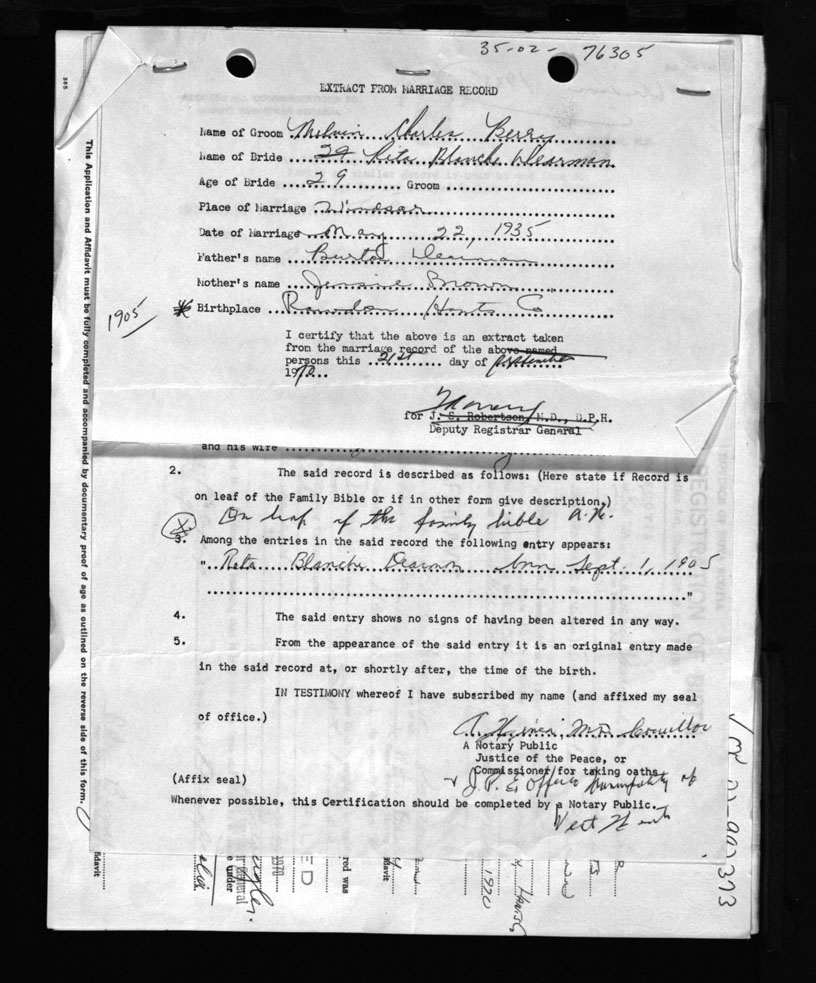 35-02- 76305
EXTRACT FROM MARRIAGE RECORD
Name of Groom Melvin Charles Berry
Name of Bride 29 Reta Blanche Dearman
Age of Bride 29 Groom
Place of Marriage Windsor
Date of Marriage May 22, 1935
Father's name Burton Dearman
Mother's name Jennie Brown
* Birthplace Rawdon Hants Co
1905
I certify that the above is an extract taken
from the marriage record of the above named
persons this 21st day of September
1970
for J. S. Robertson, M.D., D.P.H.
Deputy Registrar General
and his wife
2. The said record is described as follows: (Here state if Record is
on leaf of the Family Bible or if in other form give description.)
On leaf of the family bible A.K.
3. Among the entries in the said record the following entry appears:
" Reta Blanche Dearmon born Sept. 1, 1905
"
4. The said entry shows no signs of having been altered in any way.
5. From the appearance of the said entry it is an original entry made
in the said record at, or shortly after, the time of the birth.
IN TESTIMONY whereof I have subscribed my name (and affixed my seal
of office.)
M.D. Councillor
A Notary Public
Justice of the Peace, or
Commissioner for taking oaths
(Affix seal)
+ J.P. Ex Officio Municipality of
Whenever possible, this Certification should be completed by a Notary Public.
West Hants
This Application and Affidavit must be fully completed and accompanied by documentary proof of age as outlined on the reverse side of this form.